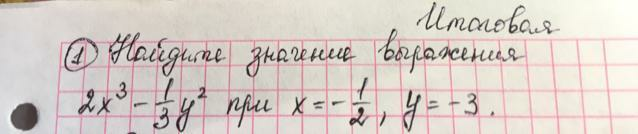 Итоговая
① Найдите значение выражения
2x³ − 1/3 y² при x = −1/2, y = −3.